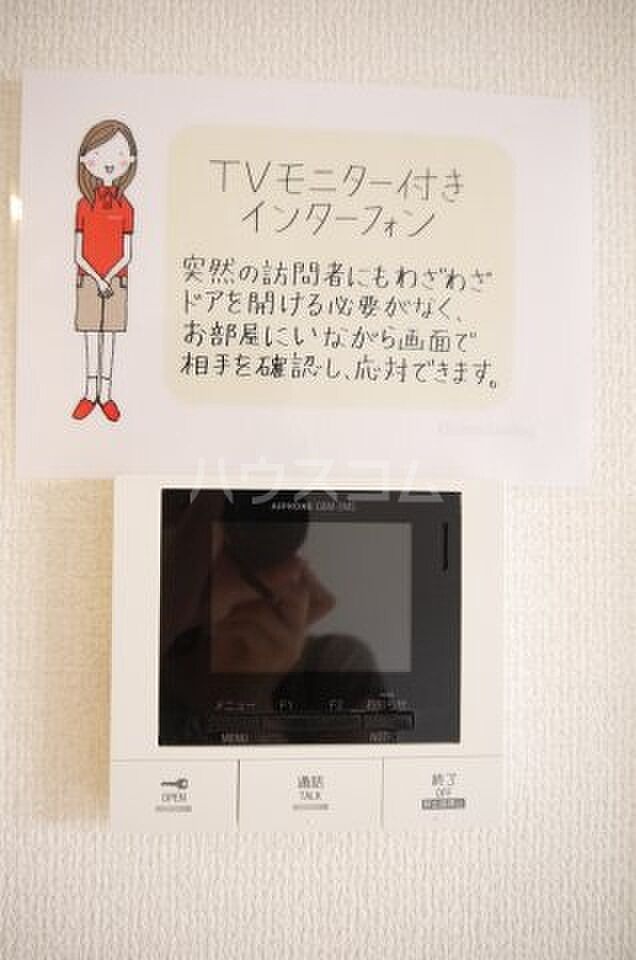 TVモニター付き
インターフォン
突然の訪問者にもわざわざ
ドアを開ける必要がなく、
お部屋にいながら画面で
相手を確認し、応対できます。
ハウスコム
AIPHONE
メニュー F1 F2 お知らせ
MENU
OPEN
通話
TALK
終了
OFF